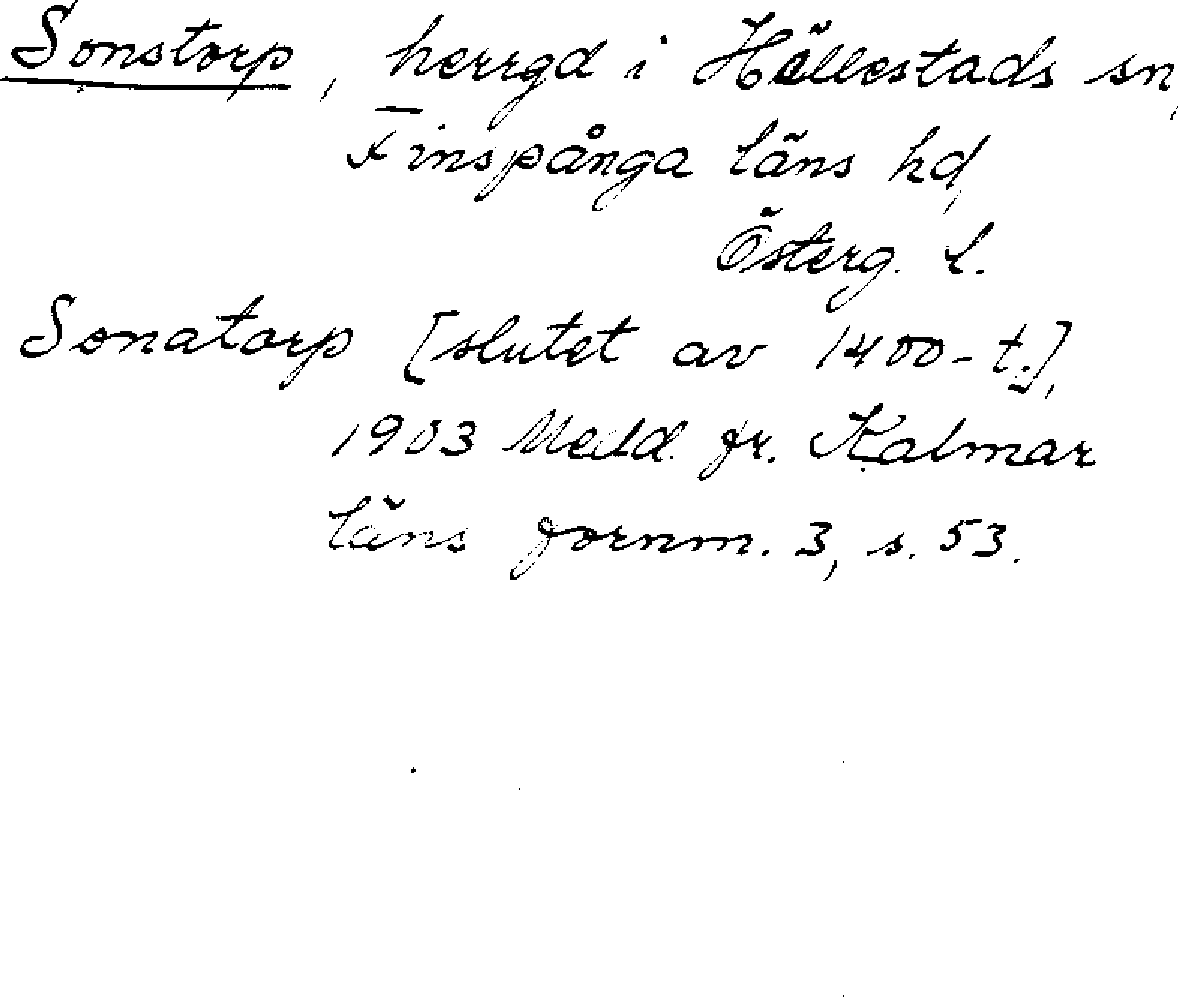 Sonstorp, herrgd i Hällestads sn,
Finspånga läns hd,
Österg. l.
Sonatorp [slutet av 1400-t.],
1903 Medd. fr. Kalmar
läns fornm. 3, s. 53.